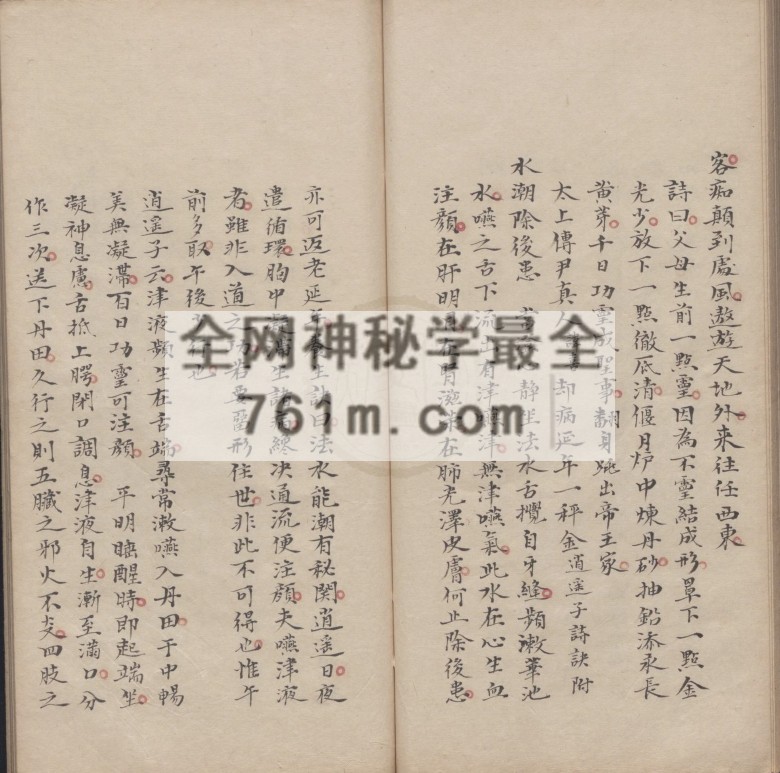 客痴顛到處風遨遊天地外來往任西東
詩曰父母生前一點靈因為不靈結成形罩下一點金
光少放下一點徹底清偃月炉中煉丹砂抽鉛添汞長
黃芽千日功靈成聖事翻身跳出帝王家
太上傳尹真人 却病延年一秤金逍遥子詩訣附
水潮除後患 靜坐法水舌攪自牙縫頻漱華池
水嚥之舌下流出有津嚥津無津嚥氣此水在心生血
注顏在肝明目在胃滋 在肺光澤皮膚何止除後患
亦可返老延年 訣曰法水能潮有秘関逍遥日夜
遣循環胸中 决通流便注顏夫嚥津液
者雖非入道之功若要畱形住世非此不可得也惟午
前多取午後 也
逍遥子云津液頻生在舌端尋常漱嚥入丹田于中暢
美無凝滯百日功靈可注顏 平明睡醒時即起端坐
凝神息慮舌抵上腭閉口調息津液自生漸至滿口分
作三次送下丹田久行之則五臟之邪火不炎四肢之
全网神秘学最全
761m.com